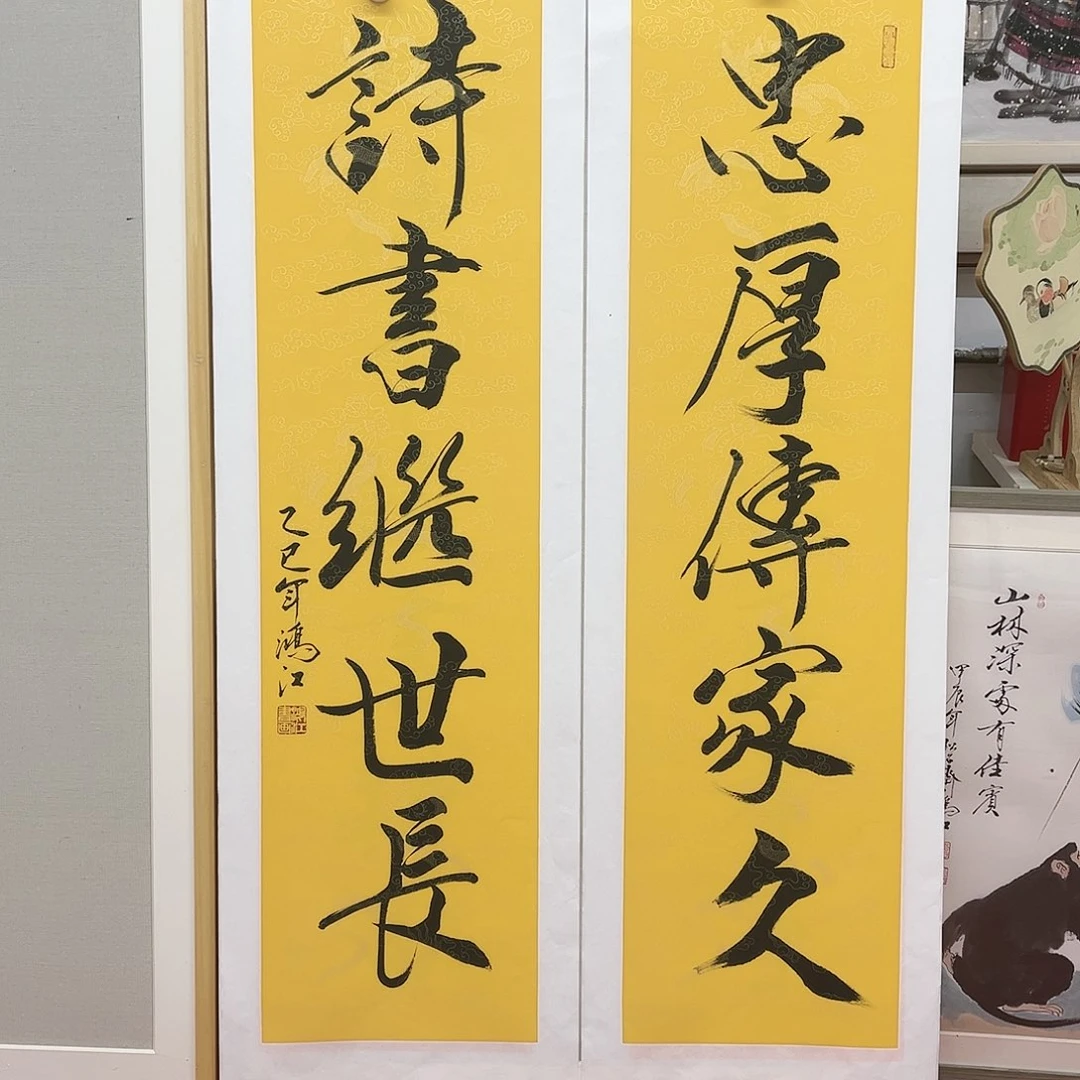 忠厚傳家久
詩書繼世長
乙巳年鴻江
山林深處有佳賓
甲辰年